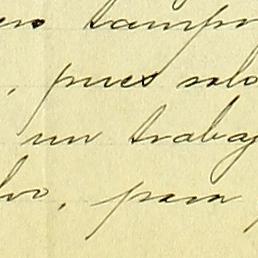 tampo
, pues solo
un trabaj
, para